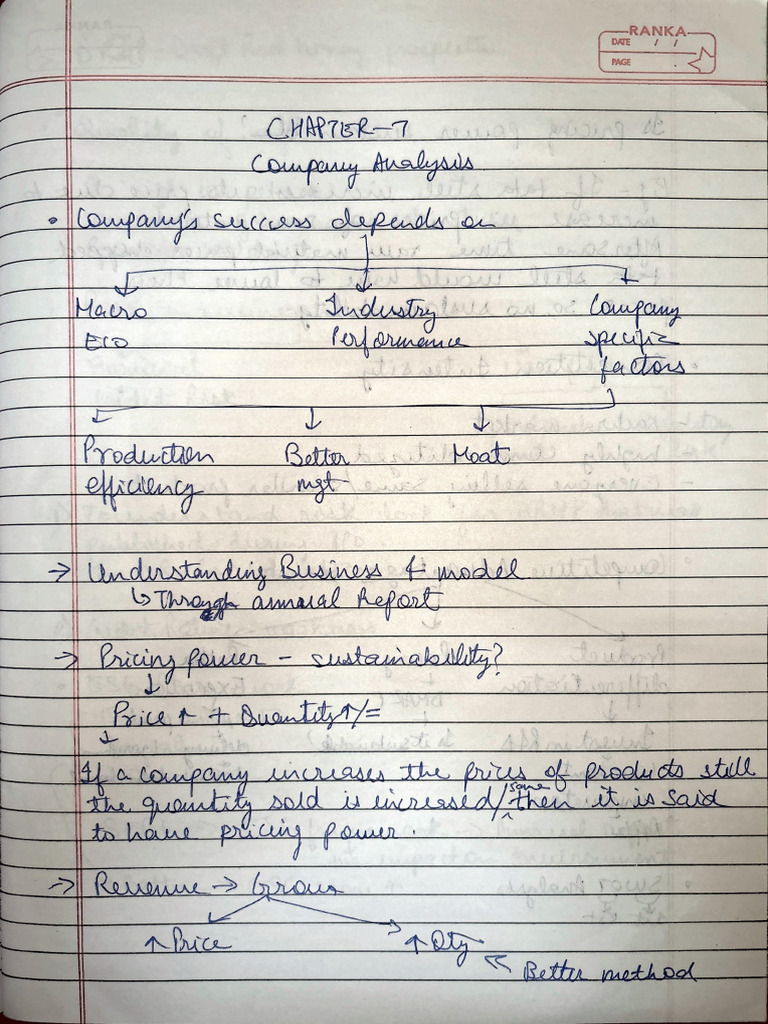 RANKA
DATE / /
PAGE
CHAPTER-7
Company Analysis
• Company's success depends on
Macro Industry Company
Eco Performance specific
factors
Production Better Moat
efficiency mgt
→ Understanding Business & model
↳ Through annual Report
→ Pricing power - sustainability?
↓
Price ↑ + Quantity ↑/=
↓
If a company increases the prices of products still
the quantity sold is increased/same then it is said
to have pricing power.
→ Revenue → Grows
↑ Price ↑ Qty
<< Better method